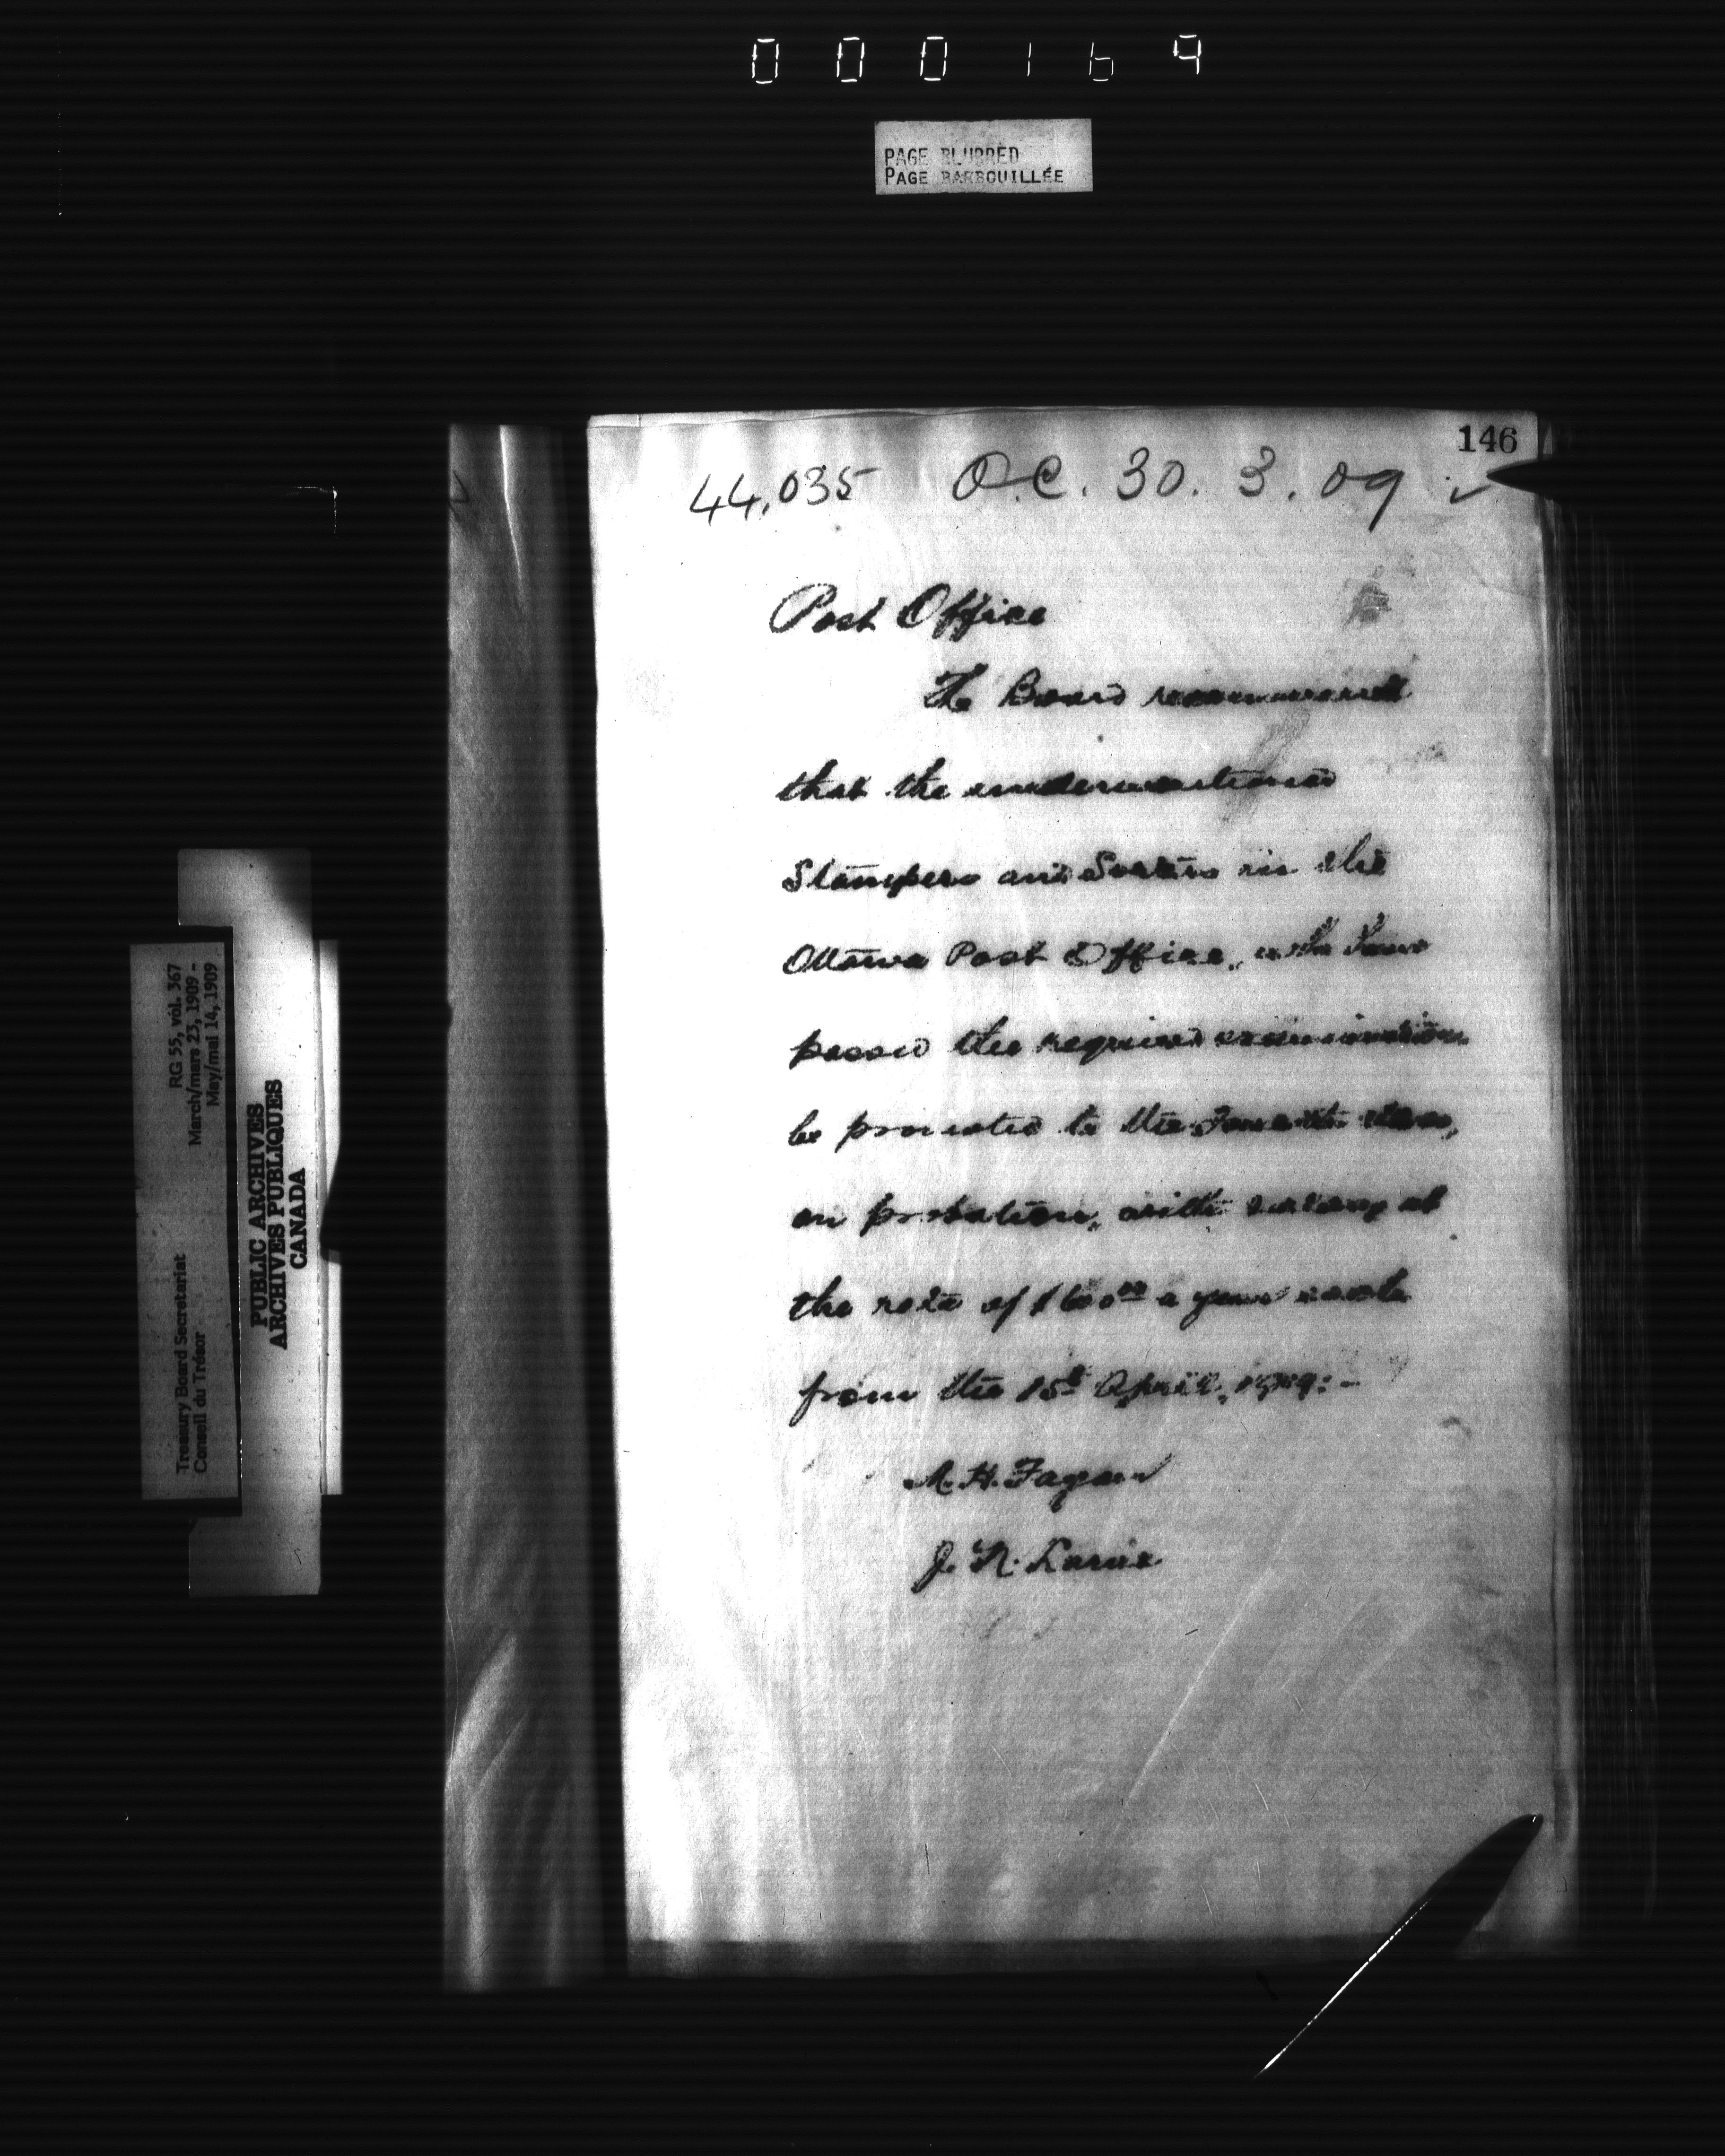 000169
PAGE BLURRED
PAGE BARBOUILLÉE
146
44,035 O.C. 30.3.09 ✓
Post Office
The Board recommend
that the undermentioned
Stampers and Sorters in the
Ottawa Post Office, who have
passed the required examination
be promoted to the Fourth class,
on probation, with salary at
the rate of $600 00 a year each
from the 1st April, 1909:-
M. H. Fagan
J. N.
RG 55, vol. 367
March/mars 23, 1909 -
May/mai 14, 1909
Treasury Board Secretariat
Conseil du Trésor
PUBLIC ARCHIVES
ARCHIVES PUBLIQUES
CANADA